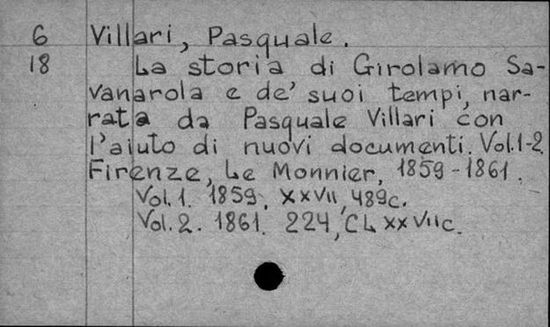 6 Villari, Pasquale.
18 La storia di Girolamo Sa-
vanarola e de' suoi tempi, nar-
rata da Pasquale Villari con
l'aiuto di nuovi documenti. Vol.1-2.
Firenze, Le Monnier, 1859-1861.
Vol.1. 1859. XXVII, 489c.
Vol.2. 1861. 224, CLXXVIIc.